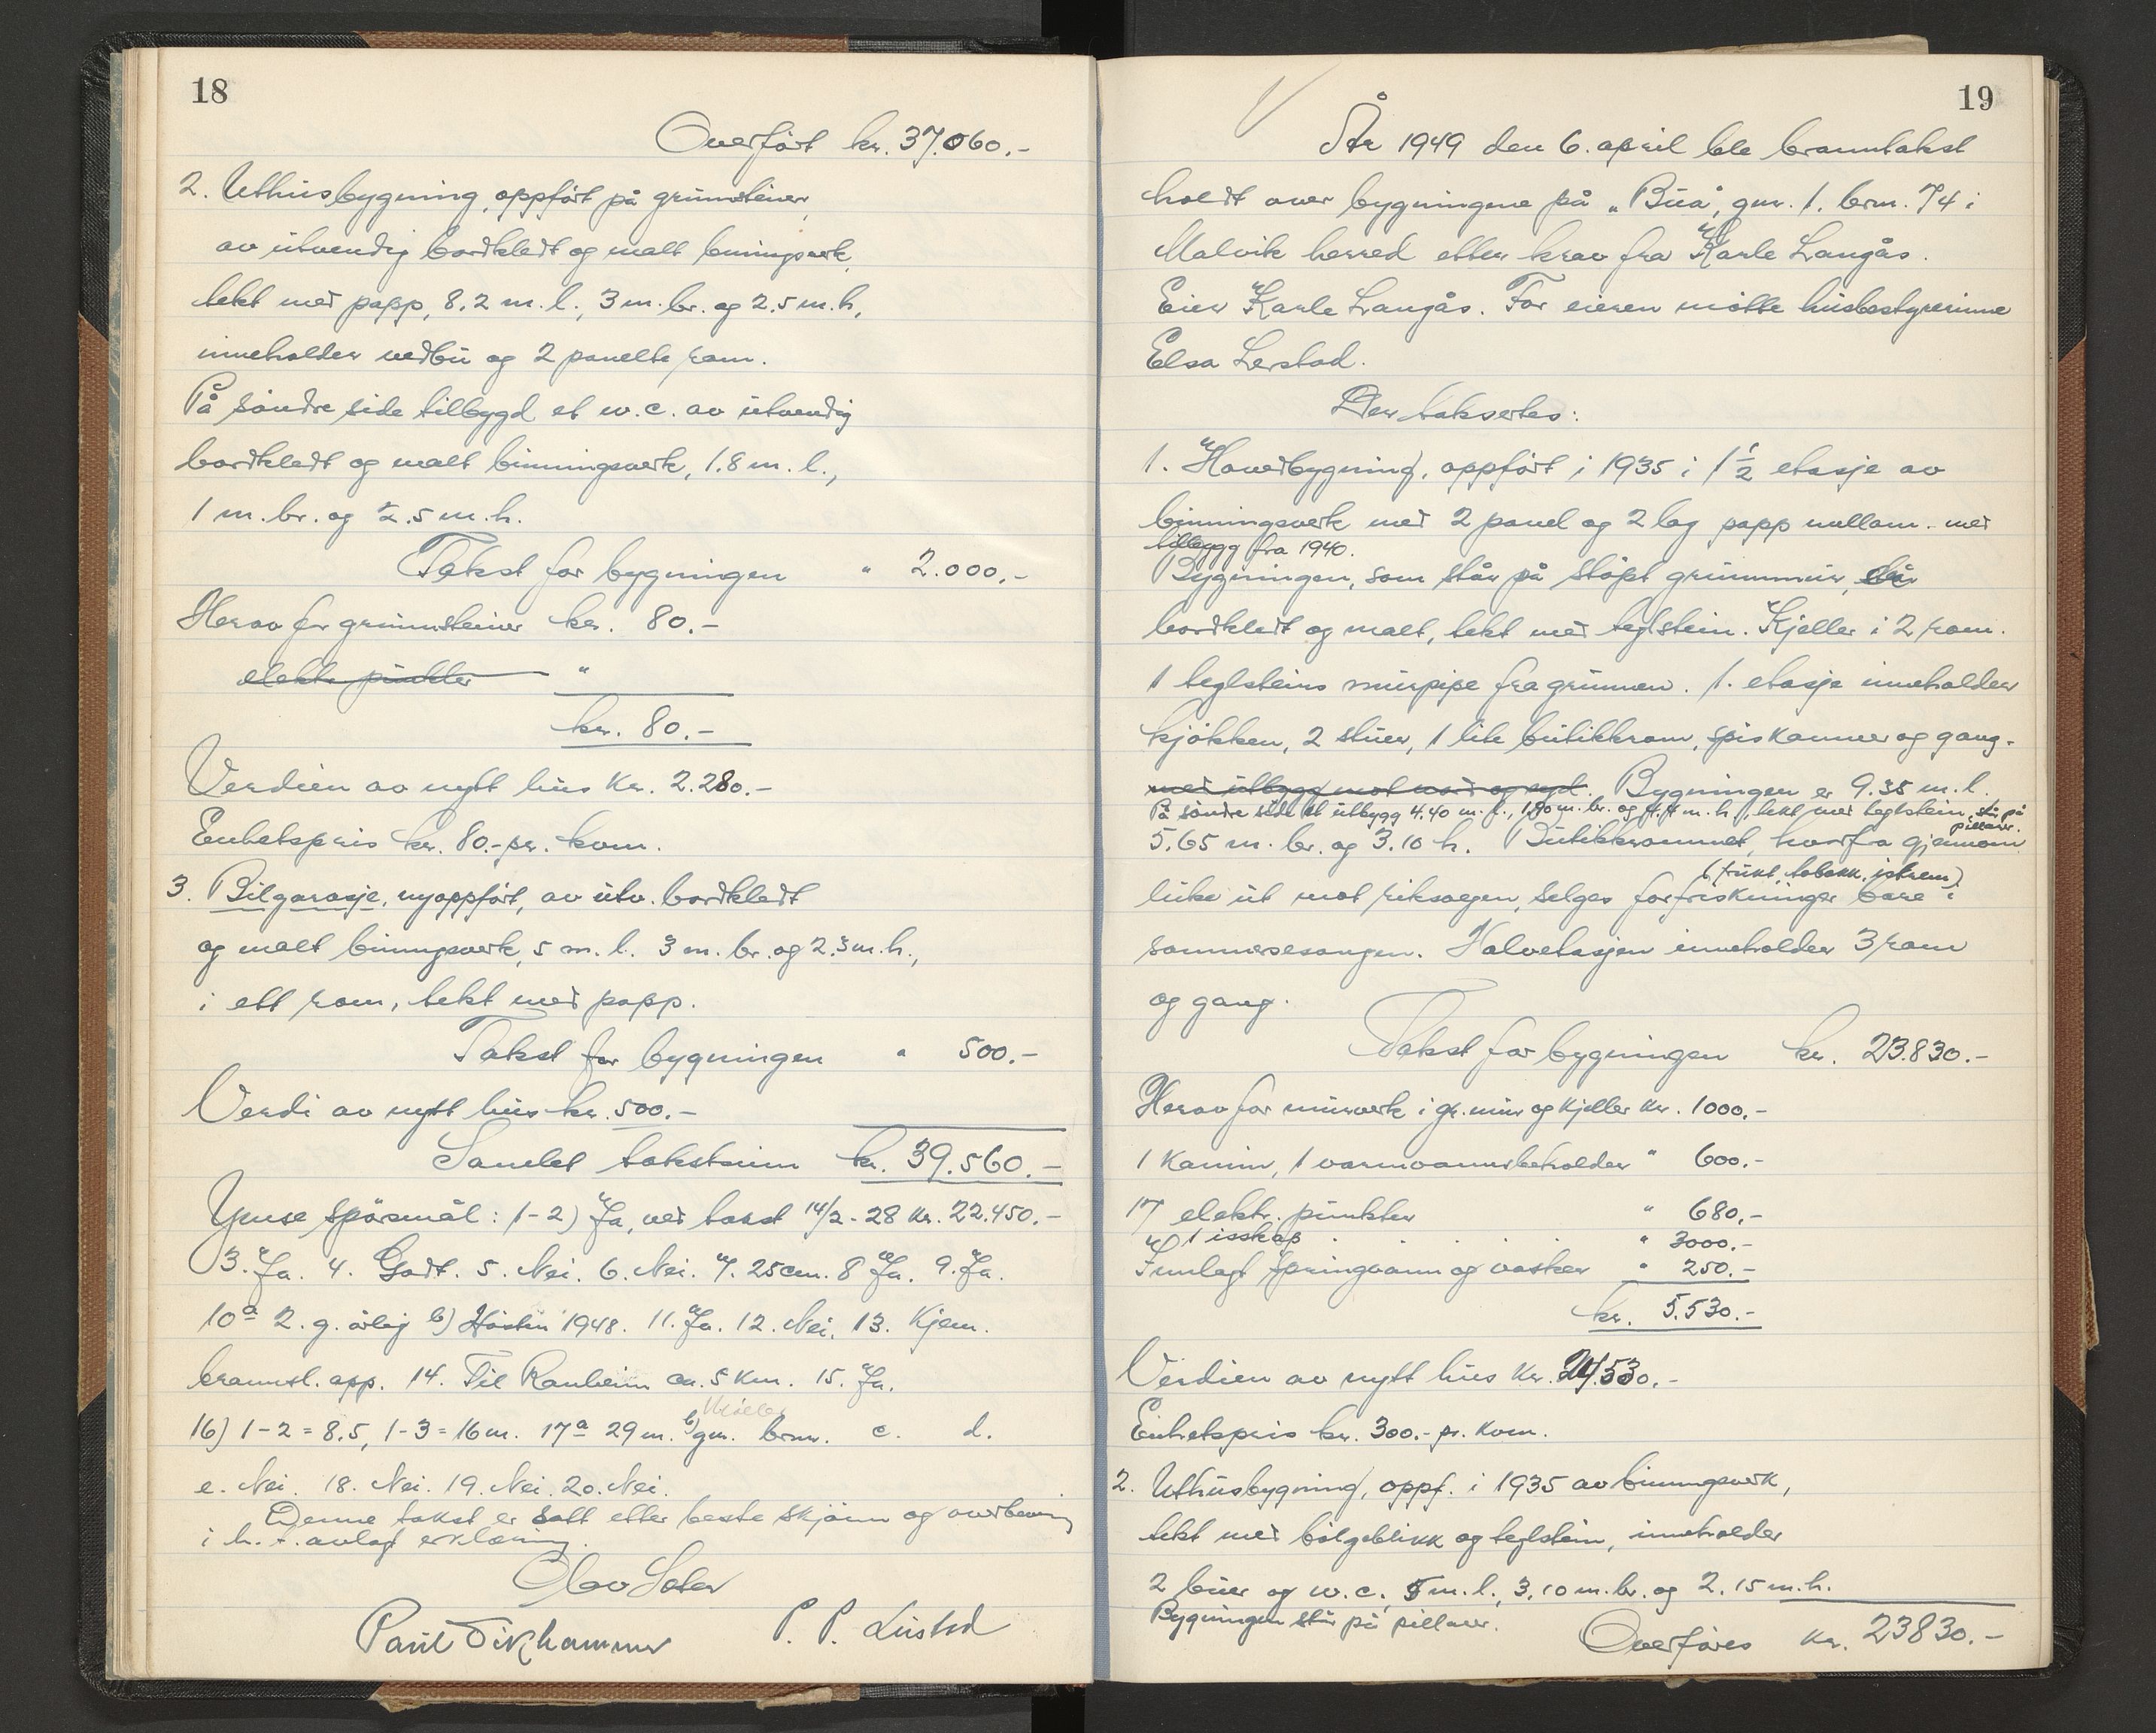 18
Overført kr. 37.060.-
2. Uthusbygning, oppført på grunnsteiner,
av utvendig bordkledt og malt binningsverk,
tekt med papp, 8.2 m. l., 3 m. br. og 2.5 m. h,
inneholder vedbu og 2 panelte rom.
På søndre side tilbygd et w.c. av utvendig
bordkledt og malt binningsverk, 1.8 m. l.,
1 m. br. og 2.5 m. h.
Takst for bygningen " 2.000,-
Herav for grunnsteiner kr. 80.-
elektr. punkter "
kr. 80.-
Verdien av nytt hus kr. 2.280.-
Enhetspris kr. 80.- pr. kvm.
3. Bilgarasje, nyoppført, av utv. bordkledt
og malt binningsverk, 5 m. l. 3 m. br. og 2.3 m. h.,
i ett rom, tekt med papp.
Takst for bygningen " 500.-
Verdi av nytt hus kr. 500.-
Samlet takstsum kr. 39.560.-
Ymse spørsmål: 1-2) Ja, ved takst 14/2-28 kr. 22.450.-
3. Ja. 4. Godt. 5. Nei. 6. Nei. 7. 25 cm. 8 Ja. 9. Ja.
10a 2. g. årlig b) Høsten 1948. 11. Ja. 12. Nei. 13. Kjem.
brannsl. app. 14. Til Ranheim ca. 5 km. 15. Ja.
16) 1-2 = 8.5, 1-3 = 16 m. 17a 29 m. b) gnr. brnr. c. d.
e. Nei. 18. Nei. 19. Nei. 20. Nei.
Denne takst er satt efter beste skjønn og overbevisning
i h. t. avlagt erklæring.
Olav Seter
Paul Vikhammer P. P. Lustad
19
År 1949 den 6. april ble branntakst
holdt over bygningene på "Bua", gnr. 1. brnr. 74 i
Malvik herred etter krav fra Karle Langås.
Eier Karle Langås. For eieren møtte husbestyrerinne
Elsa Lerstad.
Der taksertes:
1. Hovedbygning, oppført i 1935 i 1 1/2 etasje av
binningsverk med 2 panel og 2 lag papp mellom. med
tilbygg fra 1940.
Bygningen, som står på støpt grunnmur, står
bordkledt og malt, tekt med teglstein. Kjeller i 2 rom.
1 teglsteins murpipe fra grunnen. 1. etasje inneholder
kjøkken, 2 stuer, 1 lite butikkrom, spiskammer og gang.
med utbygg mot nord og syd. Bygningen er 9.35 m. l.
På søndre side et utbygg 4.40 m. l., 1.90 m. br. og 4.4 m. h., tekt med teglstein, står på
pillarer.
5.65 m. br. og 3.10 h. Butikkrommet, hvorfra gjennom
(frukt, tobakk, iskrem)
luke ut mot riksvegen, selges forfriskninger bare i
sommersesongen. Halvetasjen inneholder 3 rom
og gang.
Takst for bygningen kr. 23.830.-
Herav for murverk i gr. mur og kjeller kr. 1000.-
1 kamin, 1 varmvannsbeholder " 600.-
17 elektr. punkter " 680.-
1 isskap . . . . " 3000.-
Innlagt springvann og vasker " 250.-
kr. 5.530.-
Verdien av nytt hus kr. 24.530.-
Enhetspris kr. 300.- pr. kvm.
2. Uthusbygning, oppf. i 1935 av binningsverk,
tekt med bølgeblikk og teglstein, inneholder
2 buer og w.c., 5 m. l., 3.10 m. br. og 2.15 m. h.
Bygningen står på pillarer.
Overføres kr. 23830.-